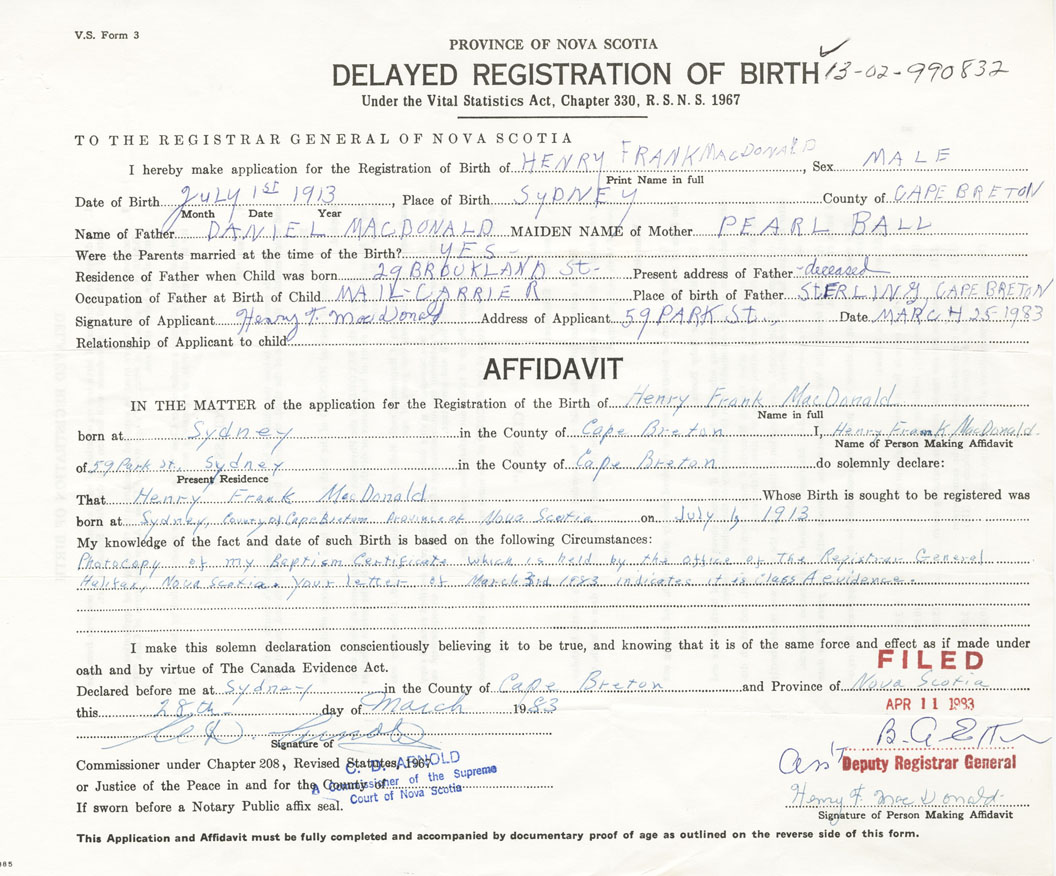 V.S. Form 3
PROVINCE OF NOVA SCOTIA
DELAYED REGISTRATION OF BIRTH 13-02-990832
Under the Vital Statistics Act, Chapter 330, R.S.N.S. 1967
TO THE REGISTRAR GENERAL OF NOVA SCOTIA
I hereby make application for the Registration of Birth of HENRY FRANK MACDONALD, Sex MALE
Print Name in full
Date of Birth JULY 1ST 1913, Place of Birth SYDNEY County of CAPE BRETON
Month Date Year
Name of Father DANIEL MACDONALD MAIDEN NAME of Mother PEARL BALL
Were the Parents married at the time of the Birth? YES-
Residence of Father when Child was born 29 BROUKLAND St- Present address of Father -deceased
Occupation of Father at Birth of Child MAIL-CARRIER Place of birth of Father STERLING, CAPE BRETON
Signature of Applicant Henry F. MacDonald Address of Applicant 59 PARK St. Date MARCH 25 1983
Relationship of Applicant to child
AFFIDAVIT
IN THE MATTER of the application for the Registration of the Birth of Henry Frank MacDonald
Name in full
born at Sydney in the County of Cape Breton I, Henry Frank MacDonald
Name of Person Making Affidavit
of 59 Park St. Sydney in the County of Cape Breton do solemnly declare:
Present Residence
That Henry Frank MacDonald Whose Birth is sought to be registered was
born at Sydney, County of Cape Breton Province of Nova Scotia on July 1, 1913
My knowledge of the fact and date of such Birth is based on the following Circumstances:
Photocopy of my Baptism Certificate which is held by the office of The Registrar General
Halifax, Nova Scotia. Your letter of March 3rd 1983 indicates it is Class A evidence.
I make this solemn declaration conscientiously believing it to be true, and knowing that it is of the same force and effect as if made under
oath and by virtue of The Canada Evidence Act.
FILED
Declared before me at Sydney in the County of Cape Breton and Province of Nova Scotia
this 28th day of March 1983
APR 11 1983
Signature of
Commissioner under Chapter 208, Revised Statutes, 1967
C. D. ARNOLD
or Justice of the Peace in and for the County of
A Commissioner of the Supreme
Court of Nova Scotia
If sworn before a Notary Public affix seal.
Ass't Deputy Registrar General
Henry F. MacDonald
Signature of Person Making Affidavit
This Application and Affidavit must be fully completed and accompanied by documentary proof of age as outlined on the reverse side of this form.